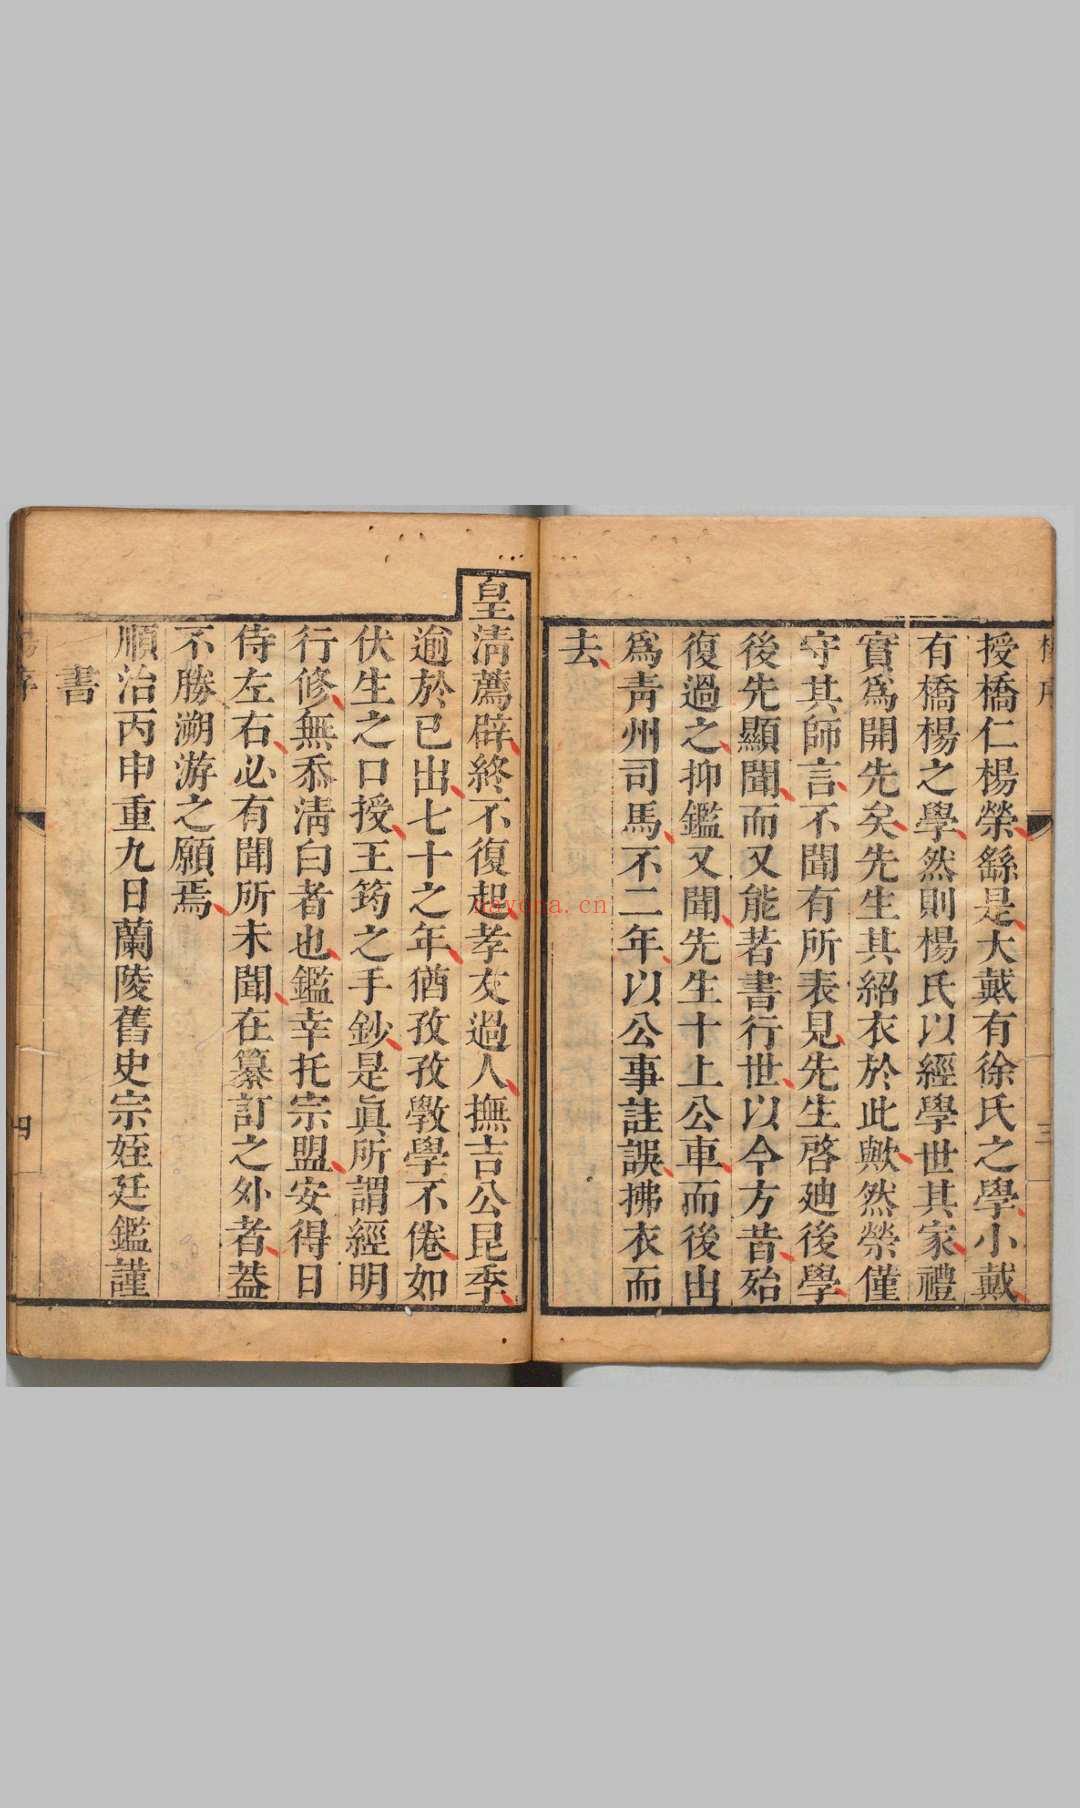 授橋仁楊榮繇是大戴有徐氏之學小戴
有橋楊之學然則楊氏以經學世其家禮
實爲開先矣先生其紹衣於此歟然榮僅
守其師言不聞有所表見先生啓廸後學
後先顯聞而又能若書行世以今方昔殆
復過之抑鑑又聞先生十上公車而後出
爲青州司馬不二年以公事詿誤拂衣而
去
皇清薦辟終不復起孝友過人撫吉公昆季
逾於已出七十之年猶孜孜斆學不倦如
伏生之口授王筠之手鈔是眞所謂經明
行修無忝清白者也鑑幸托宗盟安得日
侍左右必有聞所未聞在纂訂之外者葢
不勝溯游之願焉
順治丙申重九日蘭陵舊史宗姪廷鑑謹
書
三
四